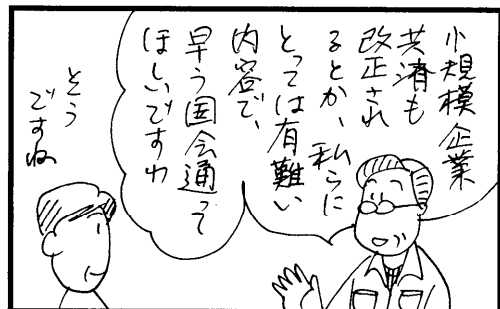 小規模企業
共済も
改正され
るとか、私らに
とっては有難い
内容で、
早う国会通って
ほしいですわ
そう
ですね